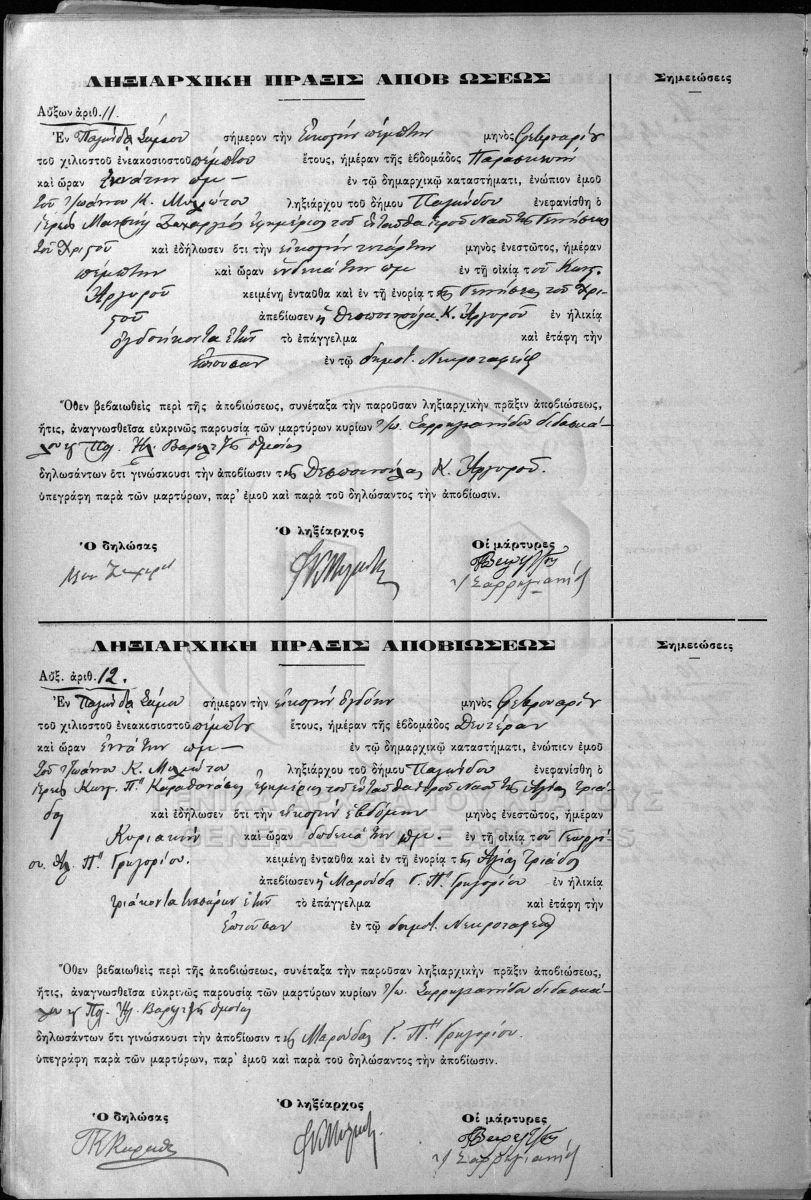 ΛΗΞΙΑΡΧΙΚΗ ΠΡΑΞΙΣ ΑΠΟΒ ΩΣΕΩΣ
Σημειώσεις
Αὔξων ἀριθ. 11.
Ἐν Παγώνδᾳ Σάμου σήμερον τὴν Εἰκοστὴν πέμπτην μηνὸς Φεβρουαρίου
τοῦ χιλιοστοῦ ἐνεακοσιοστοῦ πέμπτου ἔτους, ἡμέραν τῆς ἑβδομάδος Παρασκευὴν
καὶ ὥραν ἐννάτην πμ — ἐν τῷ δημαρχικῷ καταστήματι, ἐνώπιον ἐμοῦ
τοῦ Ἰωάννου Κ. ληξιάρχου τοῦ δήμου Παγώνδου ἐνεφανίσθη ὁ
ἱερεὺς Μανουὴλ ἐφημέριος τοῦ ἐνταῦθα ἱεροῦ Ναοῦ τῆς Γεννήσεως
τοῦ Χριστοῦ καὶ ἐδήλωσεν ὅτι τὴν εἰκοστὴν τετάρτην μηνὸς ἐνεστῶτος, ἡμέραν
πέμπτην καὶ ὥραν ἑνδεκάτην πμ ἐν τῇ οἰκίᾳ τοῦ Κωνς.
Ἀργυροῦ κειμένῃ ἐνταῦθα καὶ ἐν τῇ ἐνορίᾳ τῆς Γεννήσεως τοῦ Χρι-
στοῦ ἀπεβίωσεν ἡ Δεσποινούλα Κ. Ἀργυροῦ ἐν ἡλικίᾳ
ὀγδοήκοντα ἐτῶν τὸ ἐπάγγελμα καὶ ἐτάφη τὴν
ἐπιοῦσαν ἐν τῷ δημοτ. Νεκροταφείῳ
Ὅθεν βεβαιωθεὶς περὶ τῆς ἀποβιώσεως, συνέταξα τὴν παροῦσαν ληξιαρχικὴν πρᾶξιν ἀποβιώσεως,
ἥτις, ἀναγνωσθεῖσα εὐκρινῶς παρουσίᾳ τῶν μαρτύρων κυρίων διδασκά-
λου κ Ἠλ. Βαρελτζῆ
δηλωσάντων ὅτι γινώσκουσι τὴν ἀποβίωσιν τῆς Δεσποινούλας Κ. Ἀργυροῦ.
ὑπεγράφη παρὰ τῶν μαρτύρων, παρ' ἐμοῦ καὶ παρὰ τοῦ δηλώσαντος τὴν ἀποβίωσιν.
Ὁ δηλώσας
Ὁ ληξίαρχος
Οἱ μάρτυρες
ΛΗΞΙΑΡΧΙΚΗ ΠΡΑΞΙΣ ΑΠΟΒΙΩΣΕΩΣ
Σημειώσεις
Αὔξ. ἀριθ. 12.
Ἐν Παγώνδᾳ Σάμου σήμερον τὴν εἰκοστὴν ὀγδόην μηνὸς Φεβρουαρίου
τοῦ χιλιοστοῦ ἐνεακοσιοστοῦ πέμπτου ἔτους, ἡμέραν τῆς ἑβδομάδος Δευτέραν
καὶ ὥραν ἐννάτην πμ — ἐν τῷ δημαρχικῷ καταστήματι, ἐνώπιον ἐμοῦ
τοῦ Ἰωάννου Κ. ληξιάρχου τοῦ δήμου Παγώνδου ἐνεφανίσθη ὁ
ἱερεὺς Κωνς. ἐφημέριος τοῦ ἐνταῦθα ἱεροῦ Ναοῦ τῆς Ἁγίας Τριά-
δος καὶ ἐδήλωσεν ὅτι τὴν εἰκοστὴν ἑβδόμην μηνὸς ἐνεστῶτος, ἡμέραν
Κυριακὴν καὶ ὥραν δωδεκάτην πμ. ἐν τῇ οἰκίᾳ τοῦ Γεωργί-
ου Πη Γρηγορίου. κειμένῃ ἐνταῦθα καὶ ἐν τῇ ἐνορίᾳ τῆς Ἁγίας Τριάδος
ἀπεβίωσεν ἡ Μαρούδα Γ. Πη Γρηγορίου ἐν ἡλικίᾳ
τριάκοντα τεσσάρων ἐτῶν τὸ ἐπάγγελμα καὶ ἐτάφη τὴν
ἐπιοῦσαν ἐν τῷ δημοτ. Νεκροταφείῳ
Ὅθεν βεβαιωθεὶς περὶ τῆς ἀποβιώσεως, συνέταξα τὴν παροῦσαν ληξιαρχικὴν πρᾶξιν ἀποβιώσεως,
ἥτις, ἀναγνωσθεῖσα εὐκρινῶς παρουσίᾳ τῶν μαρτύρων κυρίων διδασκά-
λου κ Ἠλ. Βαρελτζῆ
δηλωσάντων ὅτι γινώσκουσι τὴν ἀποβίωσιν τῆς Μαρούδας Γ. Πη Γρηγορίου.
ὑπεγράφη παρὰ τῶν μαρτύρων, παρ' ἐμοῦ καὶ παρὰ τοῦ δηλώσαντος τὴν ἀποβίωσιν.
Ὁ δηλώσας
Ὁ ληξίαρχος
Οἱ μάρτυρες
ΓΕΝΙΚΑ ΑΡΧΕΙΑ ΤΟΥ ΚΡΑΤΟΥΣ
GENERAL STATE ARCHIVES